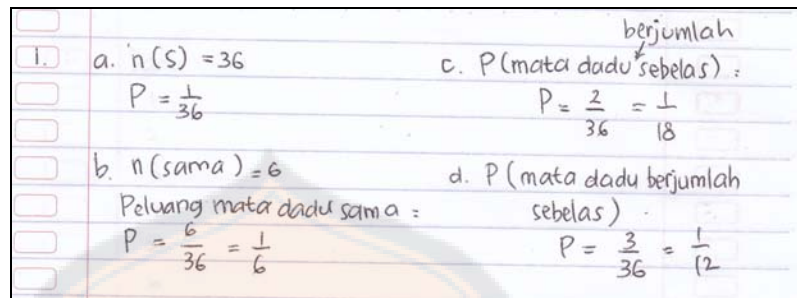 1. a. n(S) = 36
P = 1/36
b. n(sama) = 6
Peluang mata dadu sama :
P = 6/36 = 1/6
berjumlah
c. P(mata dadu sebelas) :
P = 2/36 = 1/18
d. P(mata dadu berjumlah
sebelas) .
P = 3/36 = 1/12